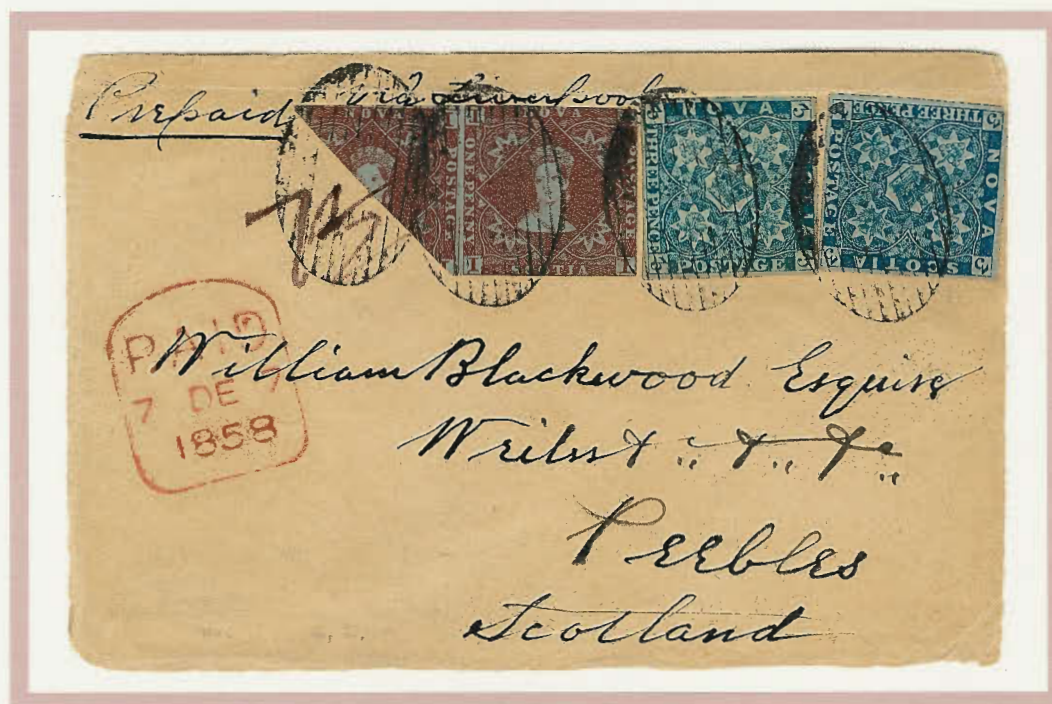 Prepaid via Liverpool
NOVA
ONE PENNY
NOVA
POSTAGE
SCOTIA
NOVA
THREE PENCE
SCOTIA
POSTAGE
THREE PENCE
POSTAGE
NOVA
SCOTIA
7½
PAID
7 DE 7
1858
William Blackwood Esquire
Writer & " & " &c "
Peebles
Scotland